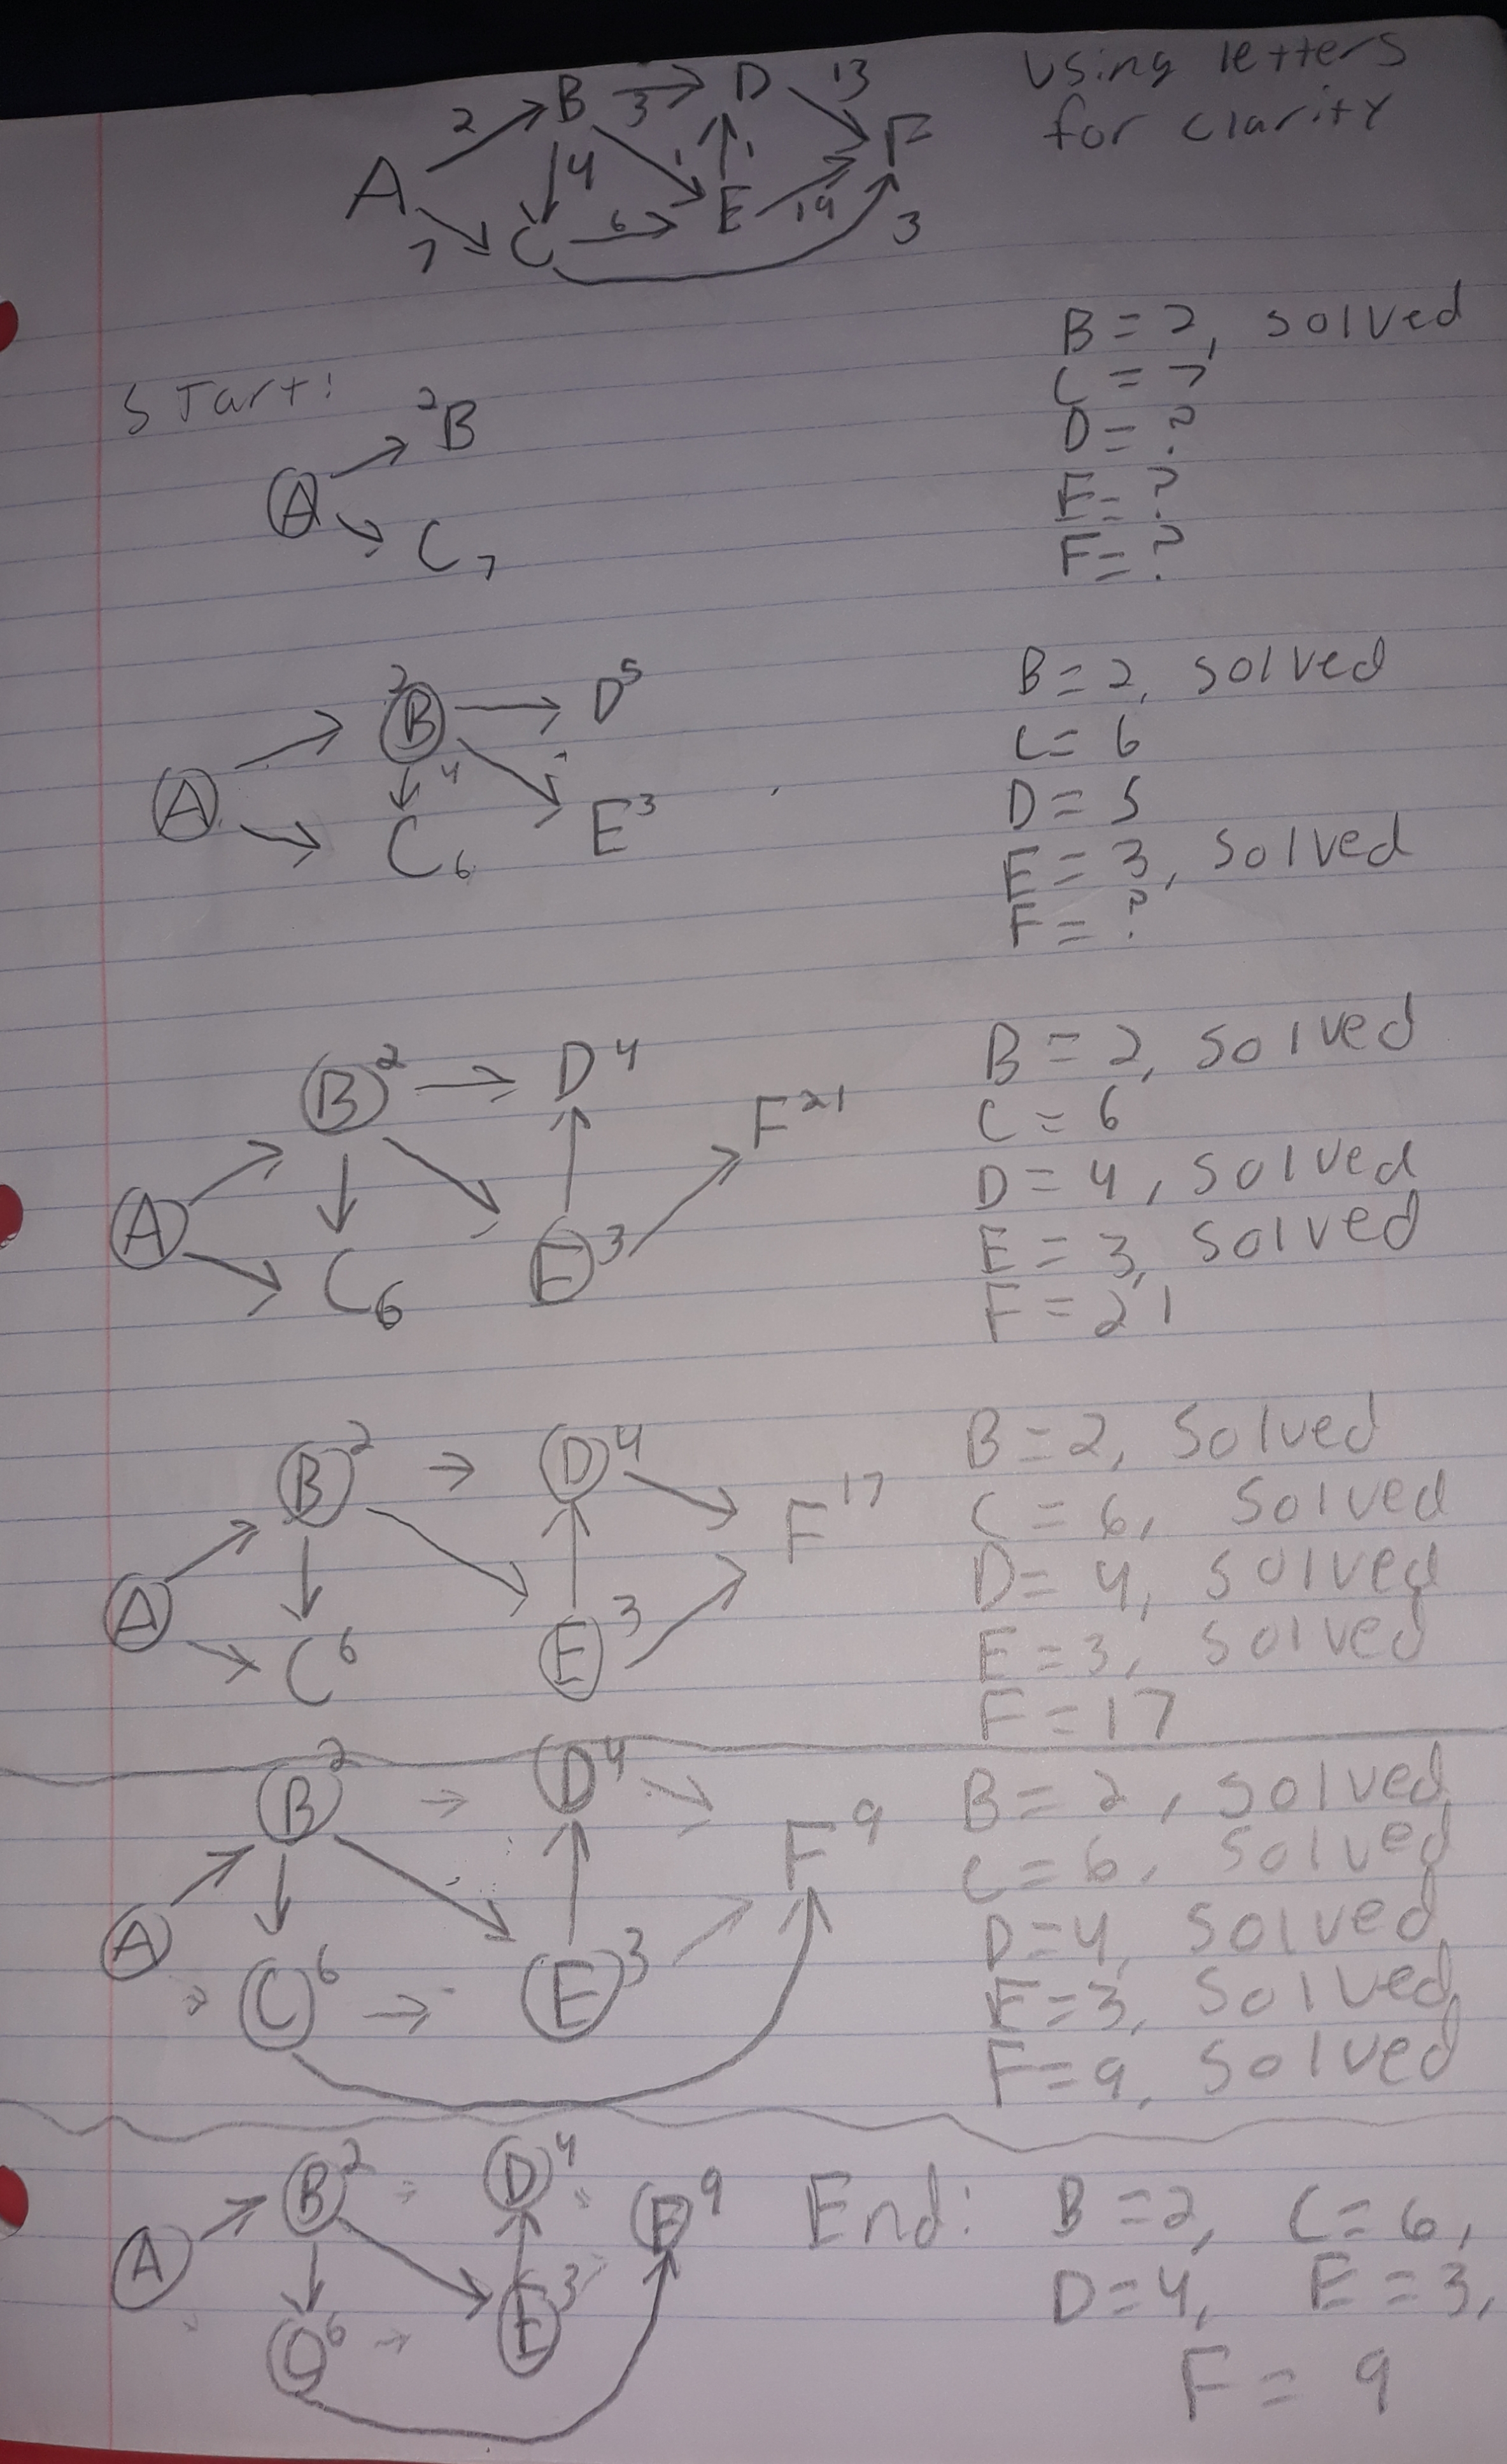 Using letters
for clarity
2 B 3 D 13
A 4 1 1 F
7 C 6 E 19 3
Start:
2 B
A
C 7
B = 2, solved
C = 7
D = ?
E = ?
F = ?
2 B D 5
A 4
C 6 E 3
B = 2, solved
C = 6
D = 5
E = 3, solved
F = ?
B 2 D 4
F 21
A
C 6 E 3
B = 2, solved
C = 6
D = 4, solved
E = 3, solved
F = 21
B 2 D 4
F 17
A
C 6 E 3
B = 2, solved
C = 6, solved
D = 4, solved
E = 3, solved
F = 17
B 2 D 4
F 9
A
C 6 E 3
B = 2, solved
C = 6, solved
D = 4, solved
E = 3, solved
F = 9, solved
B 2 D 4
F 9
A
C 6 E 3
End: B = 2, C = 6,
D = 4, E = 3,
F = 9